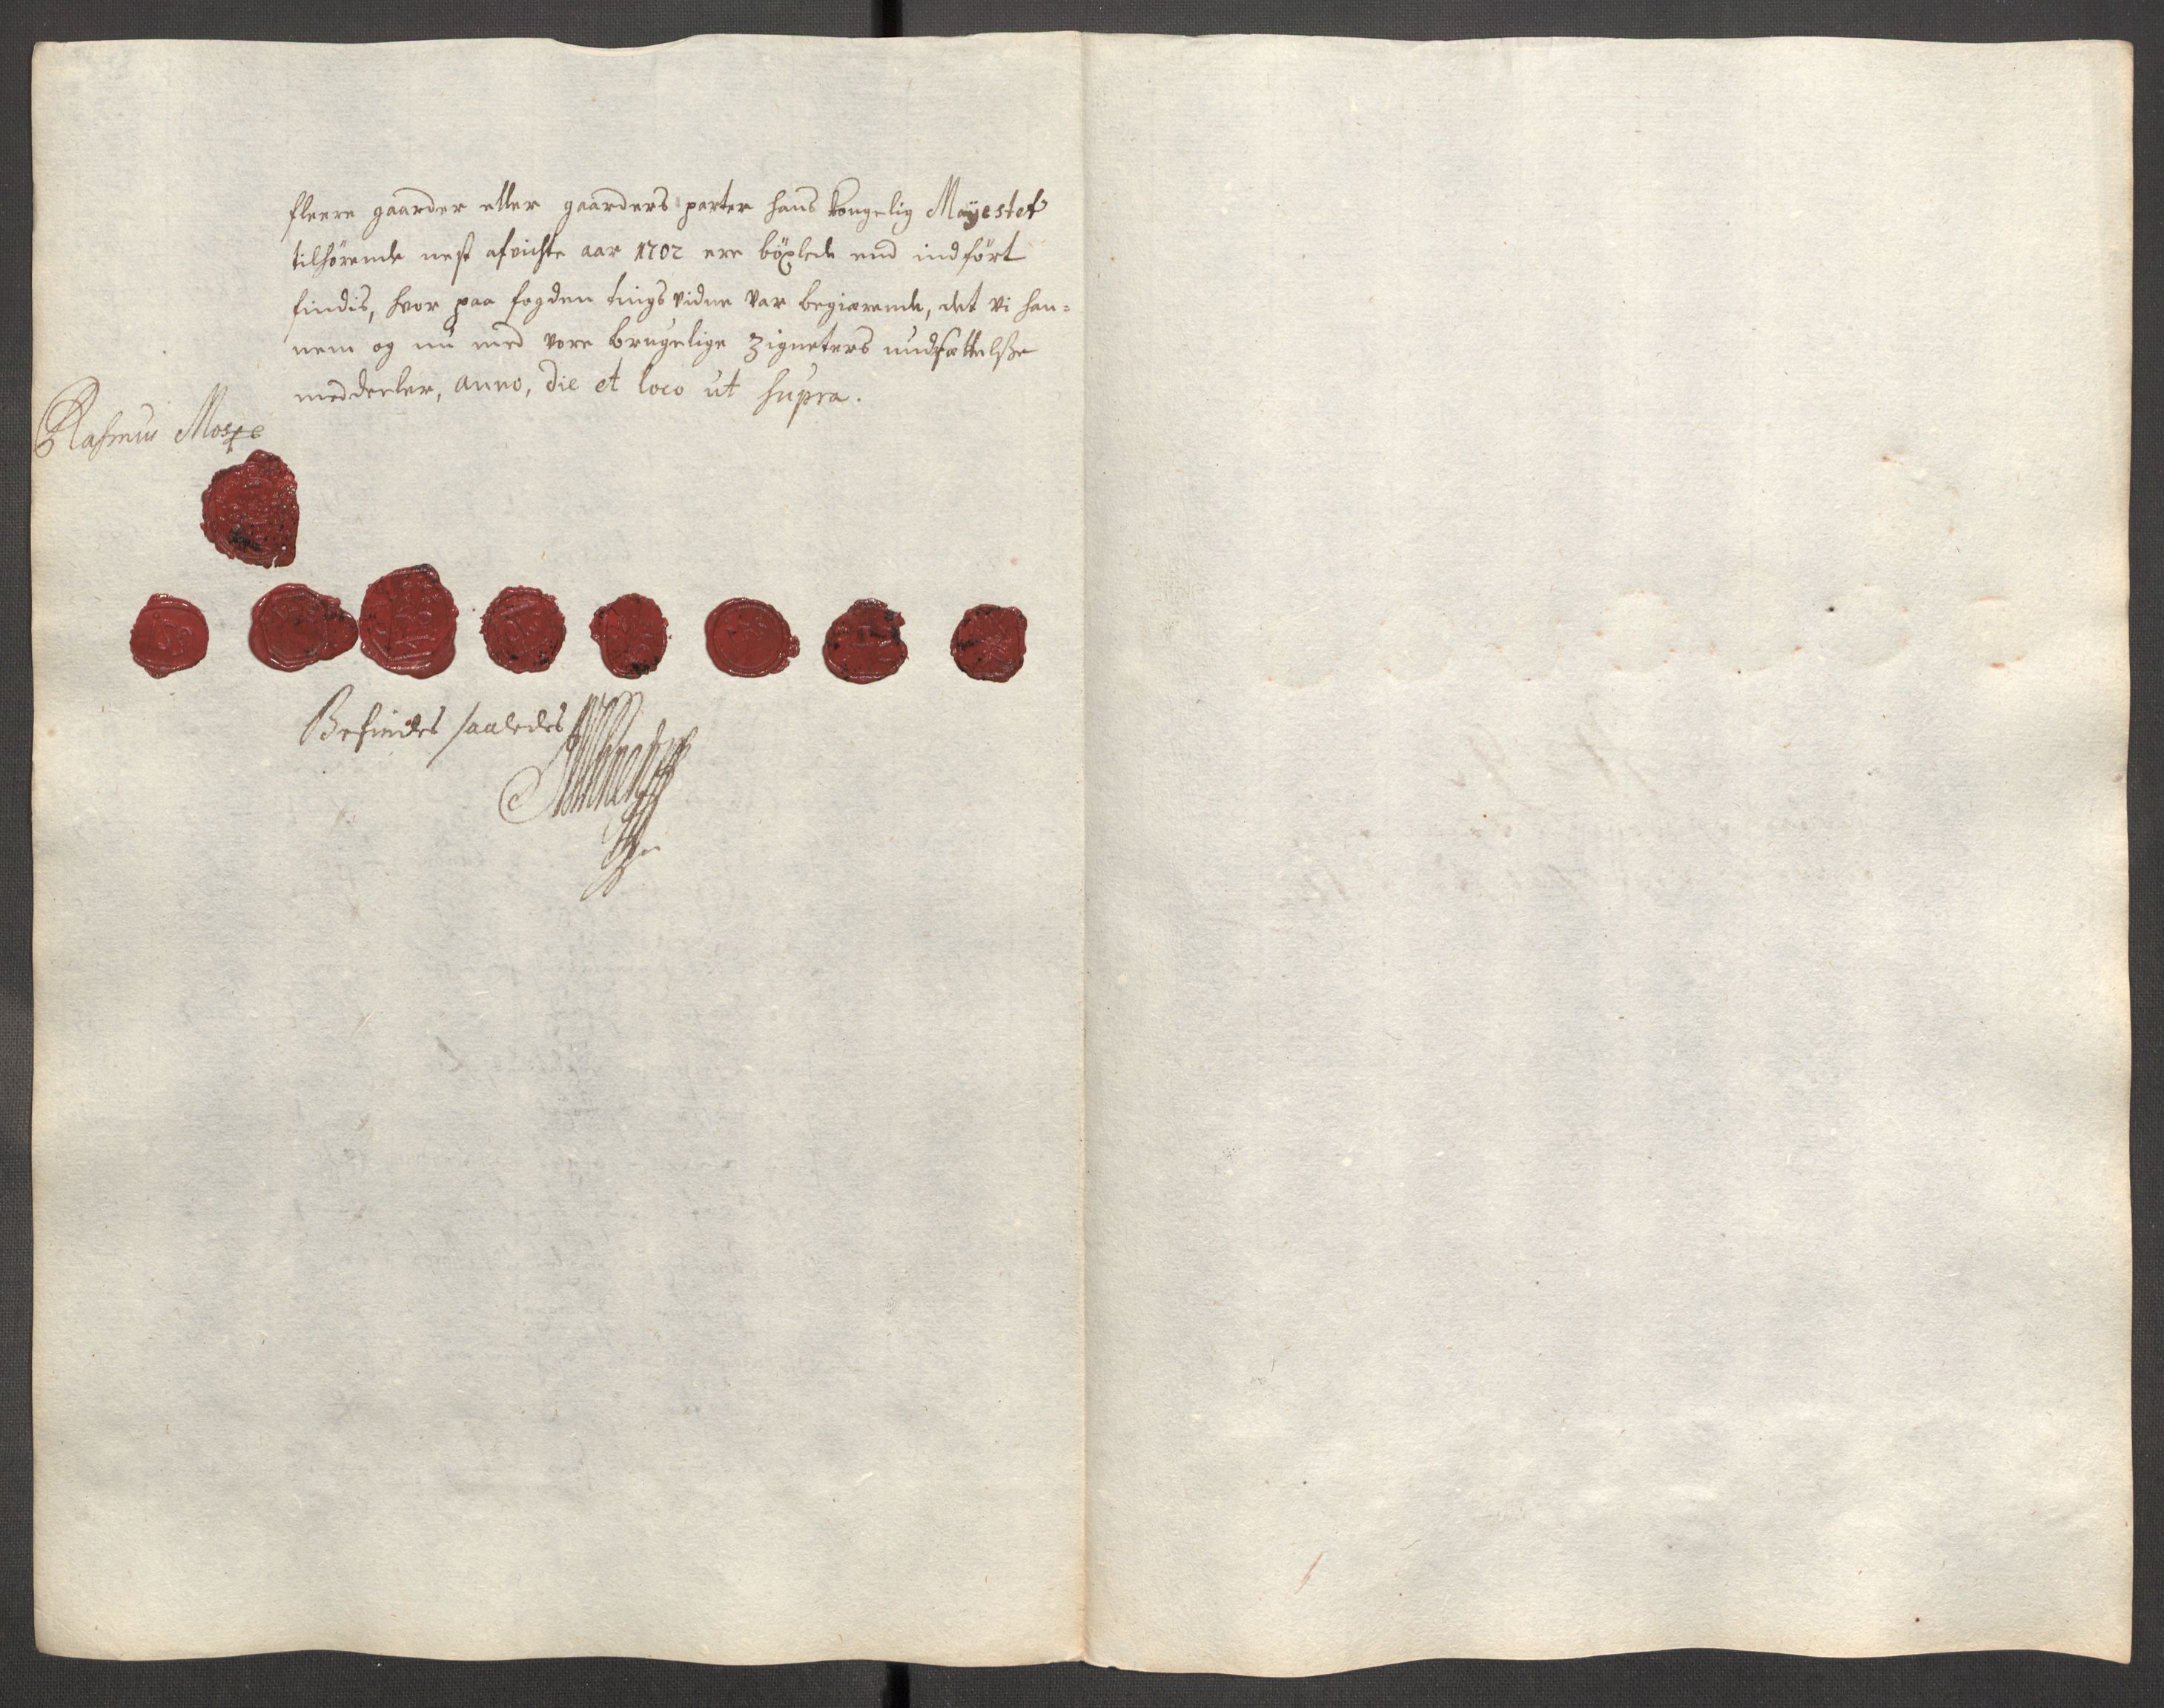 fleere gaarder eller gaarders parter hans kongelig Mayestet
tilhörende nest afvichte aar 1702 ere böxlede end indfört
findis, hvor paa fogden tings vidne var begiærende, det vi han=
nem og nu med vore brugelige Zigneters undsættelsze
meddeeler, anno, die et loco ut supra.
Rasmus Mosse
Befindes saaledes